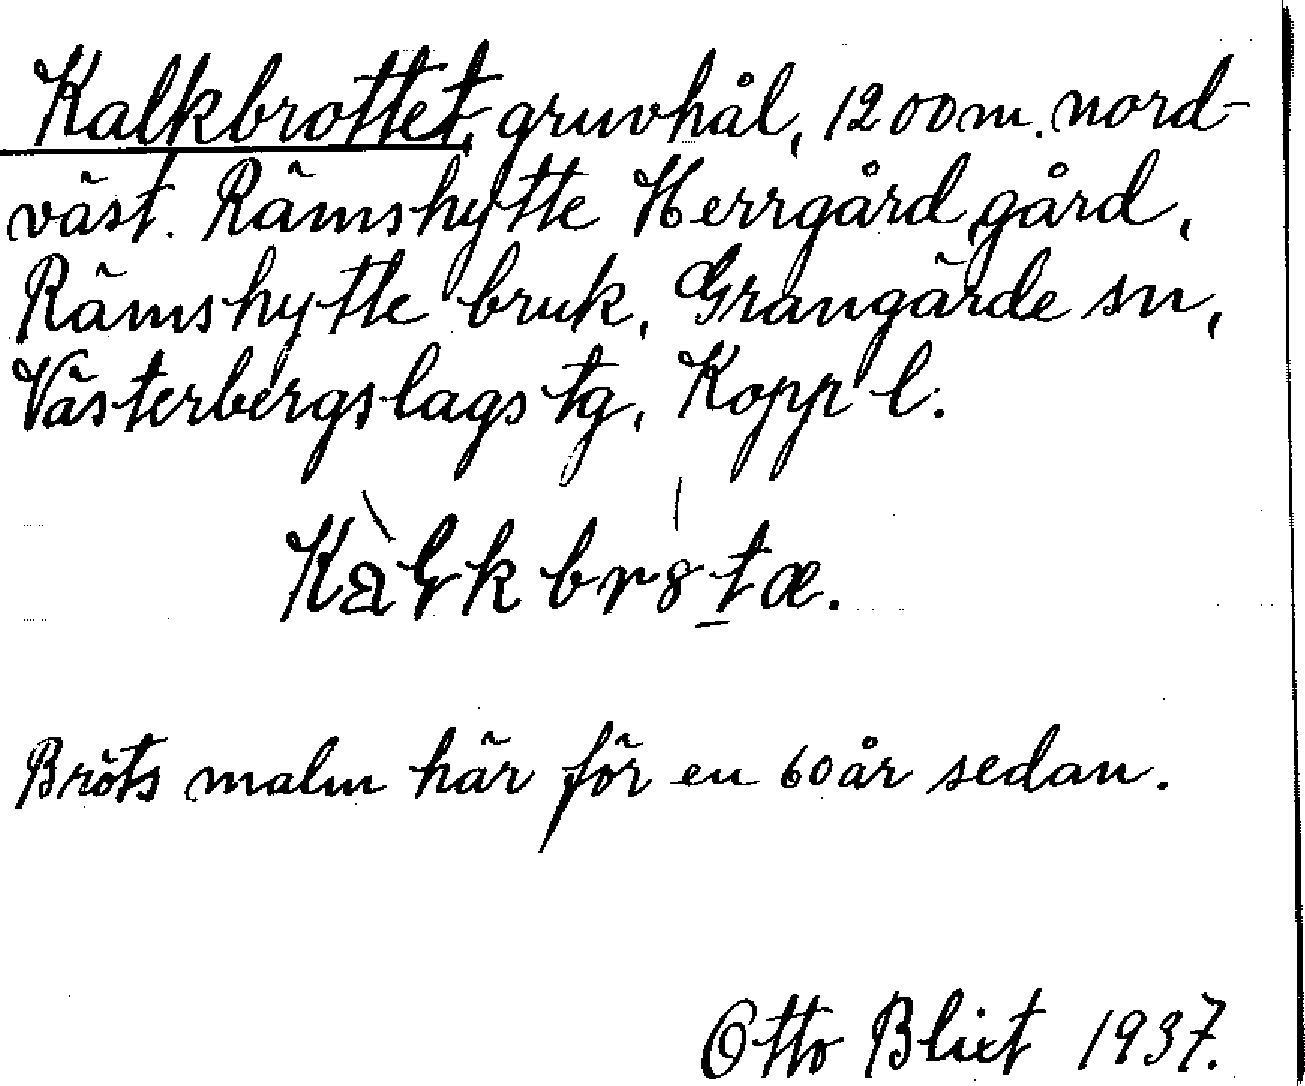 Kalkbrottet, gruvhål, 1200 m. nord-
väst. Rämshytte Herrgård, gård,
Rämshytte bruk, Grangärde sn,
Västerbergslags tg, Kopp l.
Kàɽkbrɞt̠æ.
Bröts malm här för en 60 år sedan.
Otto Blixt 1937.